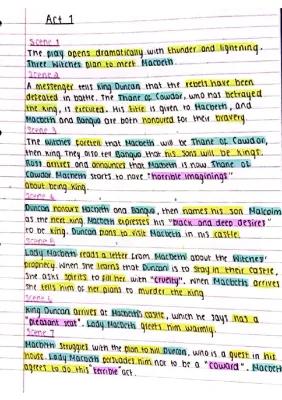 Act 1
Scene 1
The play opens dramatically with thunder and lightening.
Three Witches plan to meet Macbeth.
Scene 2
A messenger tells King Duncan that the rebels have been
defeated in battle. The Thane of Cawdor, who has betrayed
the king, is executed. His title is given to Macbeth, and
Macbeth and Banquo are both honoured for their bravery.
Scene 3
The witches foretell that Macbeth will be Thane of Cawdor,
then king. They also tell Banquo that his sons will be kings.
Ross arrives and announces that Macbeth is now Thane of
Cawdor. Macbeth starts to have "horrible imaginings"
about being king.
Scene 4
Duncan honours Macbeth and Banquo, then names his son Malcolm
as the next king. Macbeth expresses his "black and deep desires"
to be king. Duncan plans to visit Macbeth in his castle.
Scene 5
Lady Macbeth reads a letter from Macbeth about the Witches'
prophecy. When she learns that Duncan is to stay in their castle,
she asks spirits to fill her with "cruelty". When Macbeth arrives
she tells him of her plans to murder the king.
Scene 6
King Duncan arrives at Macbeth's castle, which he says has a
"pleasant seat". Lady Macbeth greets him warmly.
Scene 7
Macbeth struggles with the plan to kill Duncan, who is a guest in his
house. Lady Macbeth persuades him not to be a "coward". Macbeth
agrees to do this "terrible" act.